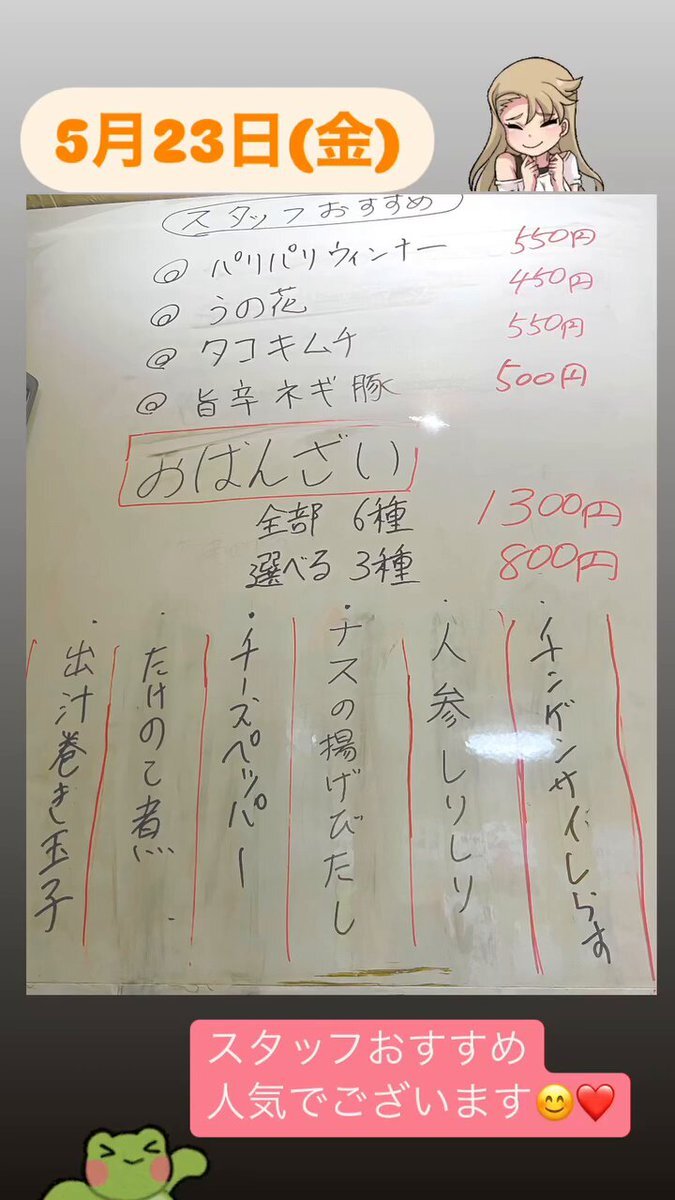 5月23日(金)
スタッフおすすめ
◎ パリパリウィンナー 550円
◎ うの花 450円
◎ タコキムチ 550円
◎ 旨辛ネギ豚 500円
おばんざい
全部 6種 1300円
選べる 3種 800円
・チンゲンサイしらす
・人参しりしり
・ナスの揚げびたし
・チーズペッパー
・たけのこ煮
・出汁巻き玉子
スタッフおすすめ
人気でございます😊❤️